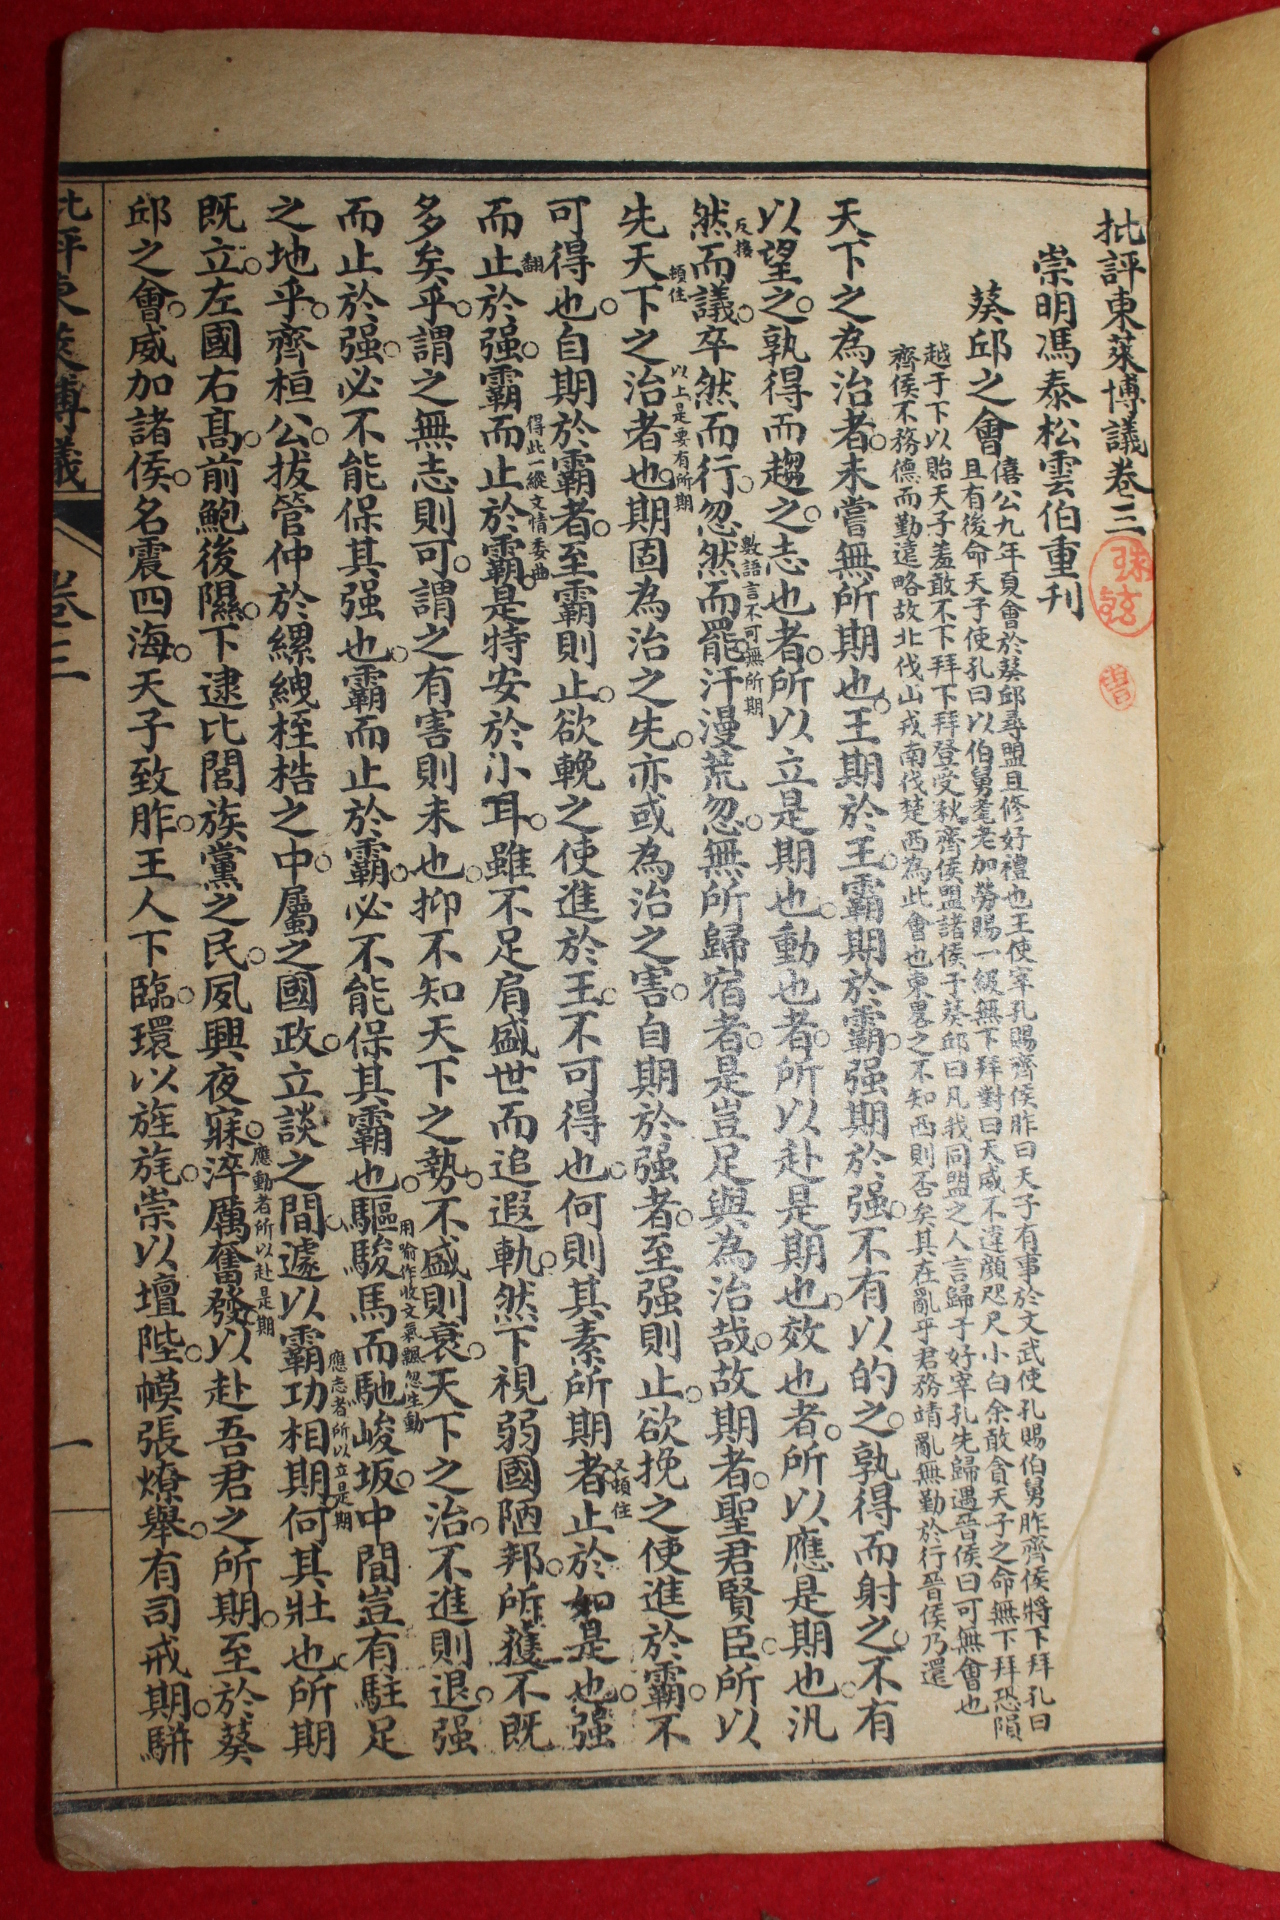 批評東萊博議卷三
崇明馮泰松雲伯重刊
葵邱之會
僖公九年夏會於葵邱尋盟且修好禮也王使宰孔賜齊侯胙曰天子有事於文武使孔賜伯舅胙齊侯將下拜孔曰
且有後命天子使孔曰以伯舅耄老加勞賜一級無下拜對曰天威不違顏咫尺小白余敢貪天子之命無下拜恐隕
越于下以貽天子羞敢不下拜下拜登受秋齊侯盟諸侯于葵邱曰凡我同盟之人言歸于好宰孔先歸遇晉侯曰可無會也
齊侯不務德而勤遠略故北伐山戎南伐楚西為此會也東畧之不知西則否矣其在亂乎君務靖亂無勤於行晉侯乃還
天下之為治者未嘗無所期也王期於王霸期於霸强期於强不有以的之孰得而射之不有
以望之孰得而趨之志也者所以立是期也動也者所以赴是期也效也者所以應是期也汎
反接
然而議卒然而行忽然而罷汗漫荒忽無所歸宿者是豈足與為治哉故期者聖君賢臣所以
數語言不可無所期
頓住
先天下之治者也期固為治之先亦或為治之害自期於强者至强則止欲挽之使進於霸不
以上是要有所期
可得也自期於霸者至霸則止欲輓之使進於王不可得也何則其素所期者止於如是也强
又頓住
翻
而止於强霸而止於霸是特安於小耳雖不足肩盛世而追遐軌然下視弱國陋邦所獲不既
得此一縱文情委曲
多矣乎謂之無志則可謂之有害則未也抑不知天下之勢不盛則衰天下之治不進則退强
而止於强必不能保其强也霸而止於霸必不能保其霸也驅駿馬而馳峻坂中間豈有駐足
用喻作收文氣飄忽生動
之地乎齊桓公拔管仲於縲絏桎梏之中屬之國政立談之間遽以霸功相期何其壯也所期
應志者所以立是期
既立左國右高前鮑後隰下逮比閭族黨之民夙興夜寐淬厲奮發以赴吾君之所期至於葵
應動者所以赴是期
邱之會威加諸侯名震四海天子致胙王人下臨環以旌旄崇以壇陛幙張燎舉有司戒期駢
批評東萊博議
卷三
一